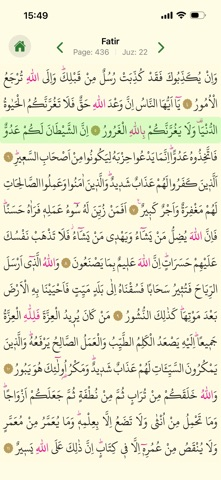 15:49
Fatir
Page: 436 | Juz: 22
وَاِنْ يُكَذِّبُوكَ فَقَدْ كُذِّبَتْ رُسُلٌ مِنْ قَبْلِكَۜ وَاِلَى اللّٰهِ تُرْجَعُ
الْاُمُورُ ﴿٤﴾ يَٓا اَيُّهَا النَّاسُ اِنَّ وَعْدَ اللّٰهِ حَقٌّ فَلَا تَغُرَّنَّكُمُ الْحَيٰوةُ
الدُّنْيَا۠ وَلَا يَغُرَّنَّكُمْ بِاللّٰهِ الْغَرُورُ ﴿٥﴾ اِنَّ الشَّيْطَانَ لَكُمْ عَدُوٌّ
فَاتَّخِذُوهُ عَدُوًّاۜ اِنَّمَا يَدْعُوا حِزْبَهُ لِيَكُونُوا مِنْ اَصْحَابِ السَّعِيرِۜ ﴿٦﴾
اَلَّذِينَ كَفَرُوا لَهُمْ عَذَابٌ شَدِيدٌۜ وَالَّذِينَ اٰمَنُوا وَعَمِلُوا الصَّالِحَاتِ
لَهُمْ مَغْفِرَةٌ وَاَجْرٌ كَبِيرٌ۟ ﴿٧﴾ اَفَمَنْ زُيِّنَ لَهُ سُٓوءُ عَمَلِهِ فَرَاٰهُ حَسَنًاۜ
فَاِنَّ اللّٰهَ يُضِلُّ مَنْ يَشَٓاءُ وَيَهْدِي مَنْ يَشَٓاءُۘ فَلَا تَذْهَبْ نَفْسُكَ
عَلَيْهِمْ حَسَرَاتٍۜ اِنَّ اللّٰهَ عَلِيمٌ بِمَا يَصْنَعُونَ ﴿٨﴾ وَاللّٰهُ الَّذِٓي اَرْسَلَ
الرِّيَاحَ فَتُثِيرُ سَحَابًا فَسُقْنَاهُ اِلٰى بَلَدٍ مَيِّتٍ فَاَحْيَيْنَا بِهِ الْاَرْضَ
بَعْدَ مَوْتِهَاۜ كَذٰلِكَ النُّشُورُ ﴿٩﴾ مَنْ كَانَ يُرِيدُ الْعِزَّةَ فَلِلّٰهِ الْعِزَّةُ
جَمِيعًاۜ اِلَيْهِ يَصْعَدُ الْكَلِمُ الطَّيِّبُ وَالْعَمَلُ الصَّالِحُ يَرْفَعُهُۜ وَالَّذِينَ
يَمْكُرُونَ السَّيِّـَٔاتِ لَهُمْ عَذَابٌ شَدِيدٌۜ وَمَكْرُ اُو۬لٰٓئِكَ هُوَ يَبُورُ ﴿١٠﴾
وَاللّٰهُ خَلَقَكُمْ مِنْ تُرَابٍ ثُمَّ مِنْ نُطْفَةٍ ثُمَّ جَعَلَكُمْ اَزْوَاجًاۜ
وَمَا تَحْمِلُ مِنْ اُنْثٰى وَلَا تَضَعُ اِلَّا بِعِلْمِهِۜ وَمَا يُعَمَّرُ مِنْ مُعَمَّرٍ
وَلَا يُنْقَصُ مِنْ عُمُرِهِٓ اِلَّا فِي كِتَابٍۜ اِنَّ ذٰلِكَ عَلَى اللّٰهِ يَسِيرٌ ﴿١١﴾